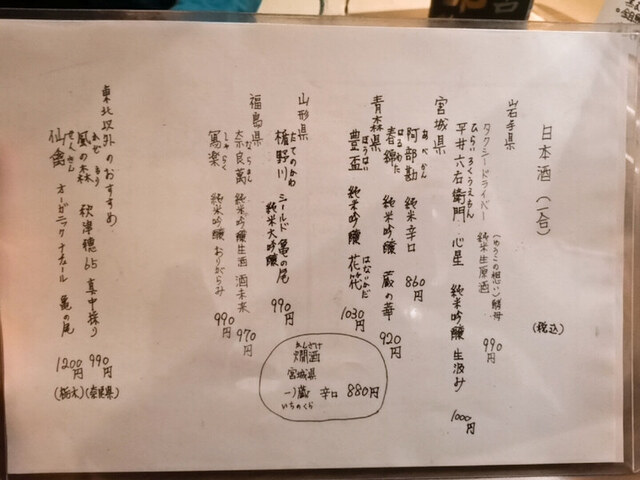 日本酒（一合）
（税込）
岩手県
タクシードライバー 純米生原酒 （ゆうこの想い）酵母 990円
ひらいろくうえもん
平井六右衛門 心星 純米吟醸 生汲み 1000円
宮城県
あべかん
阿部勘 純米辛口 860円
はるわた
春錦 純米吟醸 蔵の華 920円
青森県
ほうはい
豊盃 純米吟醸 花筏 1030円
はないかだ
山形県
たてのかわ
楯野川 シールド 亀の尾 純米大吟醸 990円
福島県
ならまん
奈良萬 純米吟醸生酒 酒未来 970円
しゃらく
寫楽 純米吟醸 おりがらみ 990円
東北以外のおすすめ
かぜのもり
風の森 秋津穂65 真中採り 990円（奈良県）
せんきん
仙禽 オーガニックナチュール 亀の尾 1200円（栃木）
燗酒
宮城県
一ノ蔵 辛口 880円
いちのくら